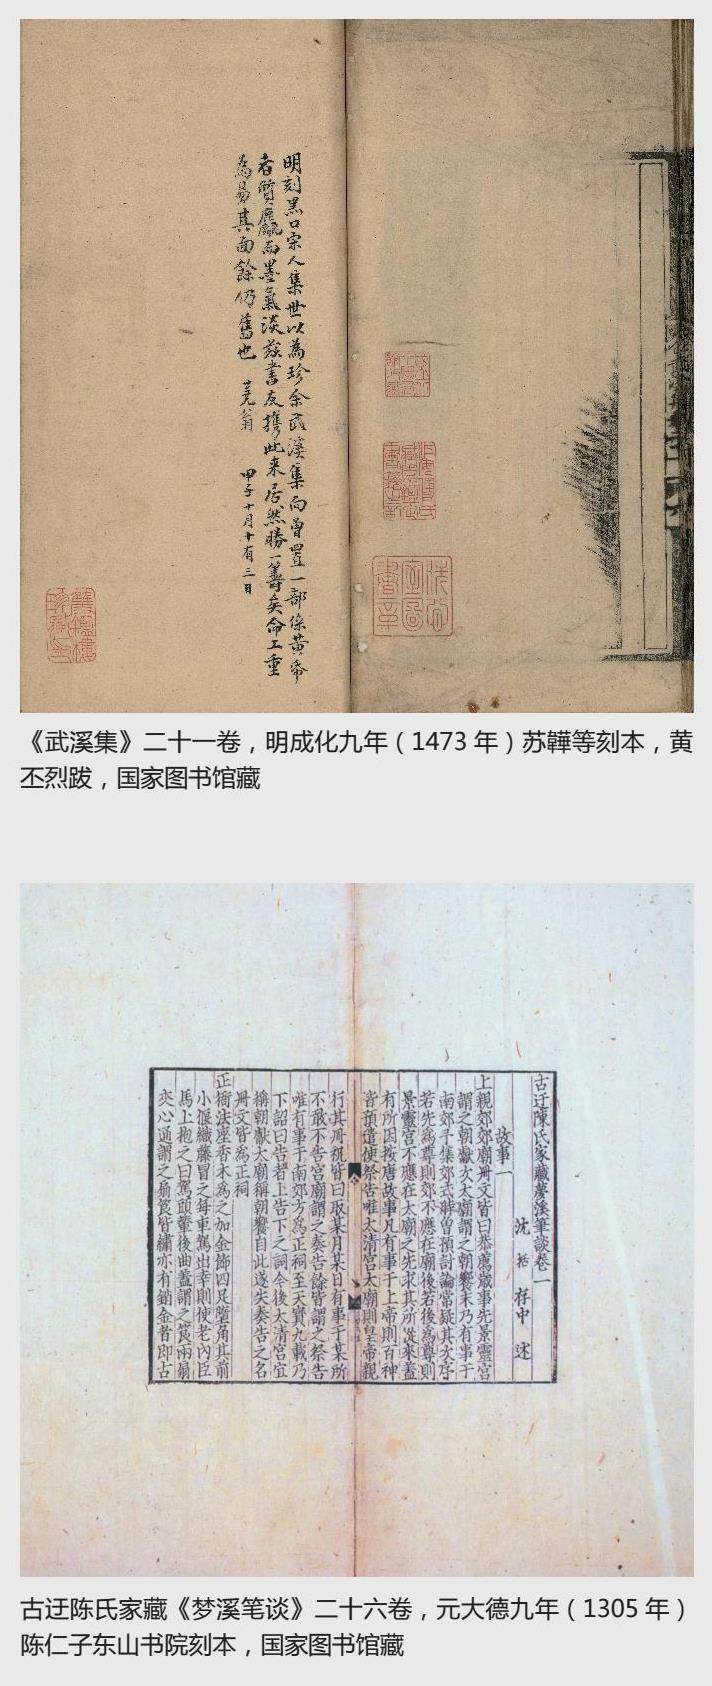 明刻黑口宋人集世以為珍余武溪集向曾置一部係黃帋
者質麤而墨氣淡茲書友攜此来居然勝一籌矣命工重
為易其面餘仍舊也 蕘翁 甲子十月十有三日
《武溪集》二十一卷，明成化九年（1473 年）苏韡等刻本，黄
丕烈跋，国家图书馆藏
古迂陳氏家藏夢溪筆談卷一
沈 括 存中 述
故事一
上親郊郊廟冊文皆曰恭薦歲事先景靈宮
謂之朝獻次太廟謂之朝饗末乃有事于
南郊予集郊式時曽預討論常疑其次序
若先為尊則郊不應在廟後若後為尊則
景靈宮不應在太廟之先求其所從來蓋
有所因按唐故事凡有事于上帝則百神
皆預遣使祭告唯太清宮太廟則皇帝親
行其冊祝皆曰取某月某日有事于某所
不敢不告宮廟謂之奏告餘皆謂之祭告
唯有事于南郊方為正祠至天寶九載乃
下詔曰告者上告下之詞今後太清宮宜
稱朝獻太廟稱朝饗自此遂失奏告之名
冊文皆為正祠
正衙法座香木為之加金飾四足墮角其前
小偃織藤冒之每車駕出幸則使老內臣
馬上抱之曰駕頭輦後曲蓋謂之筤兩扇
夾心通謂之扇筤皆繡亦有銷金者即古
古迂陈氏家藏《梦溪笔谈》二十六卷，元大德九年（1305 年）
陈仁子东山书院刻本，国家图书馆藏